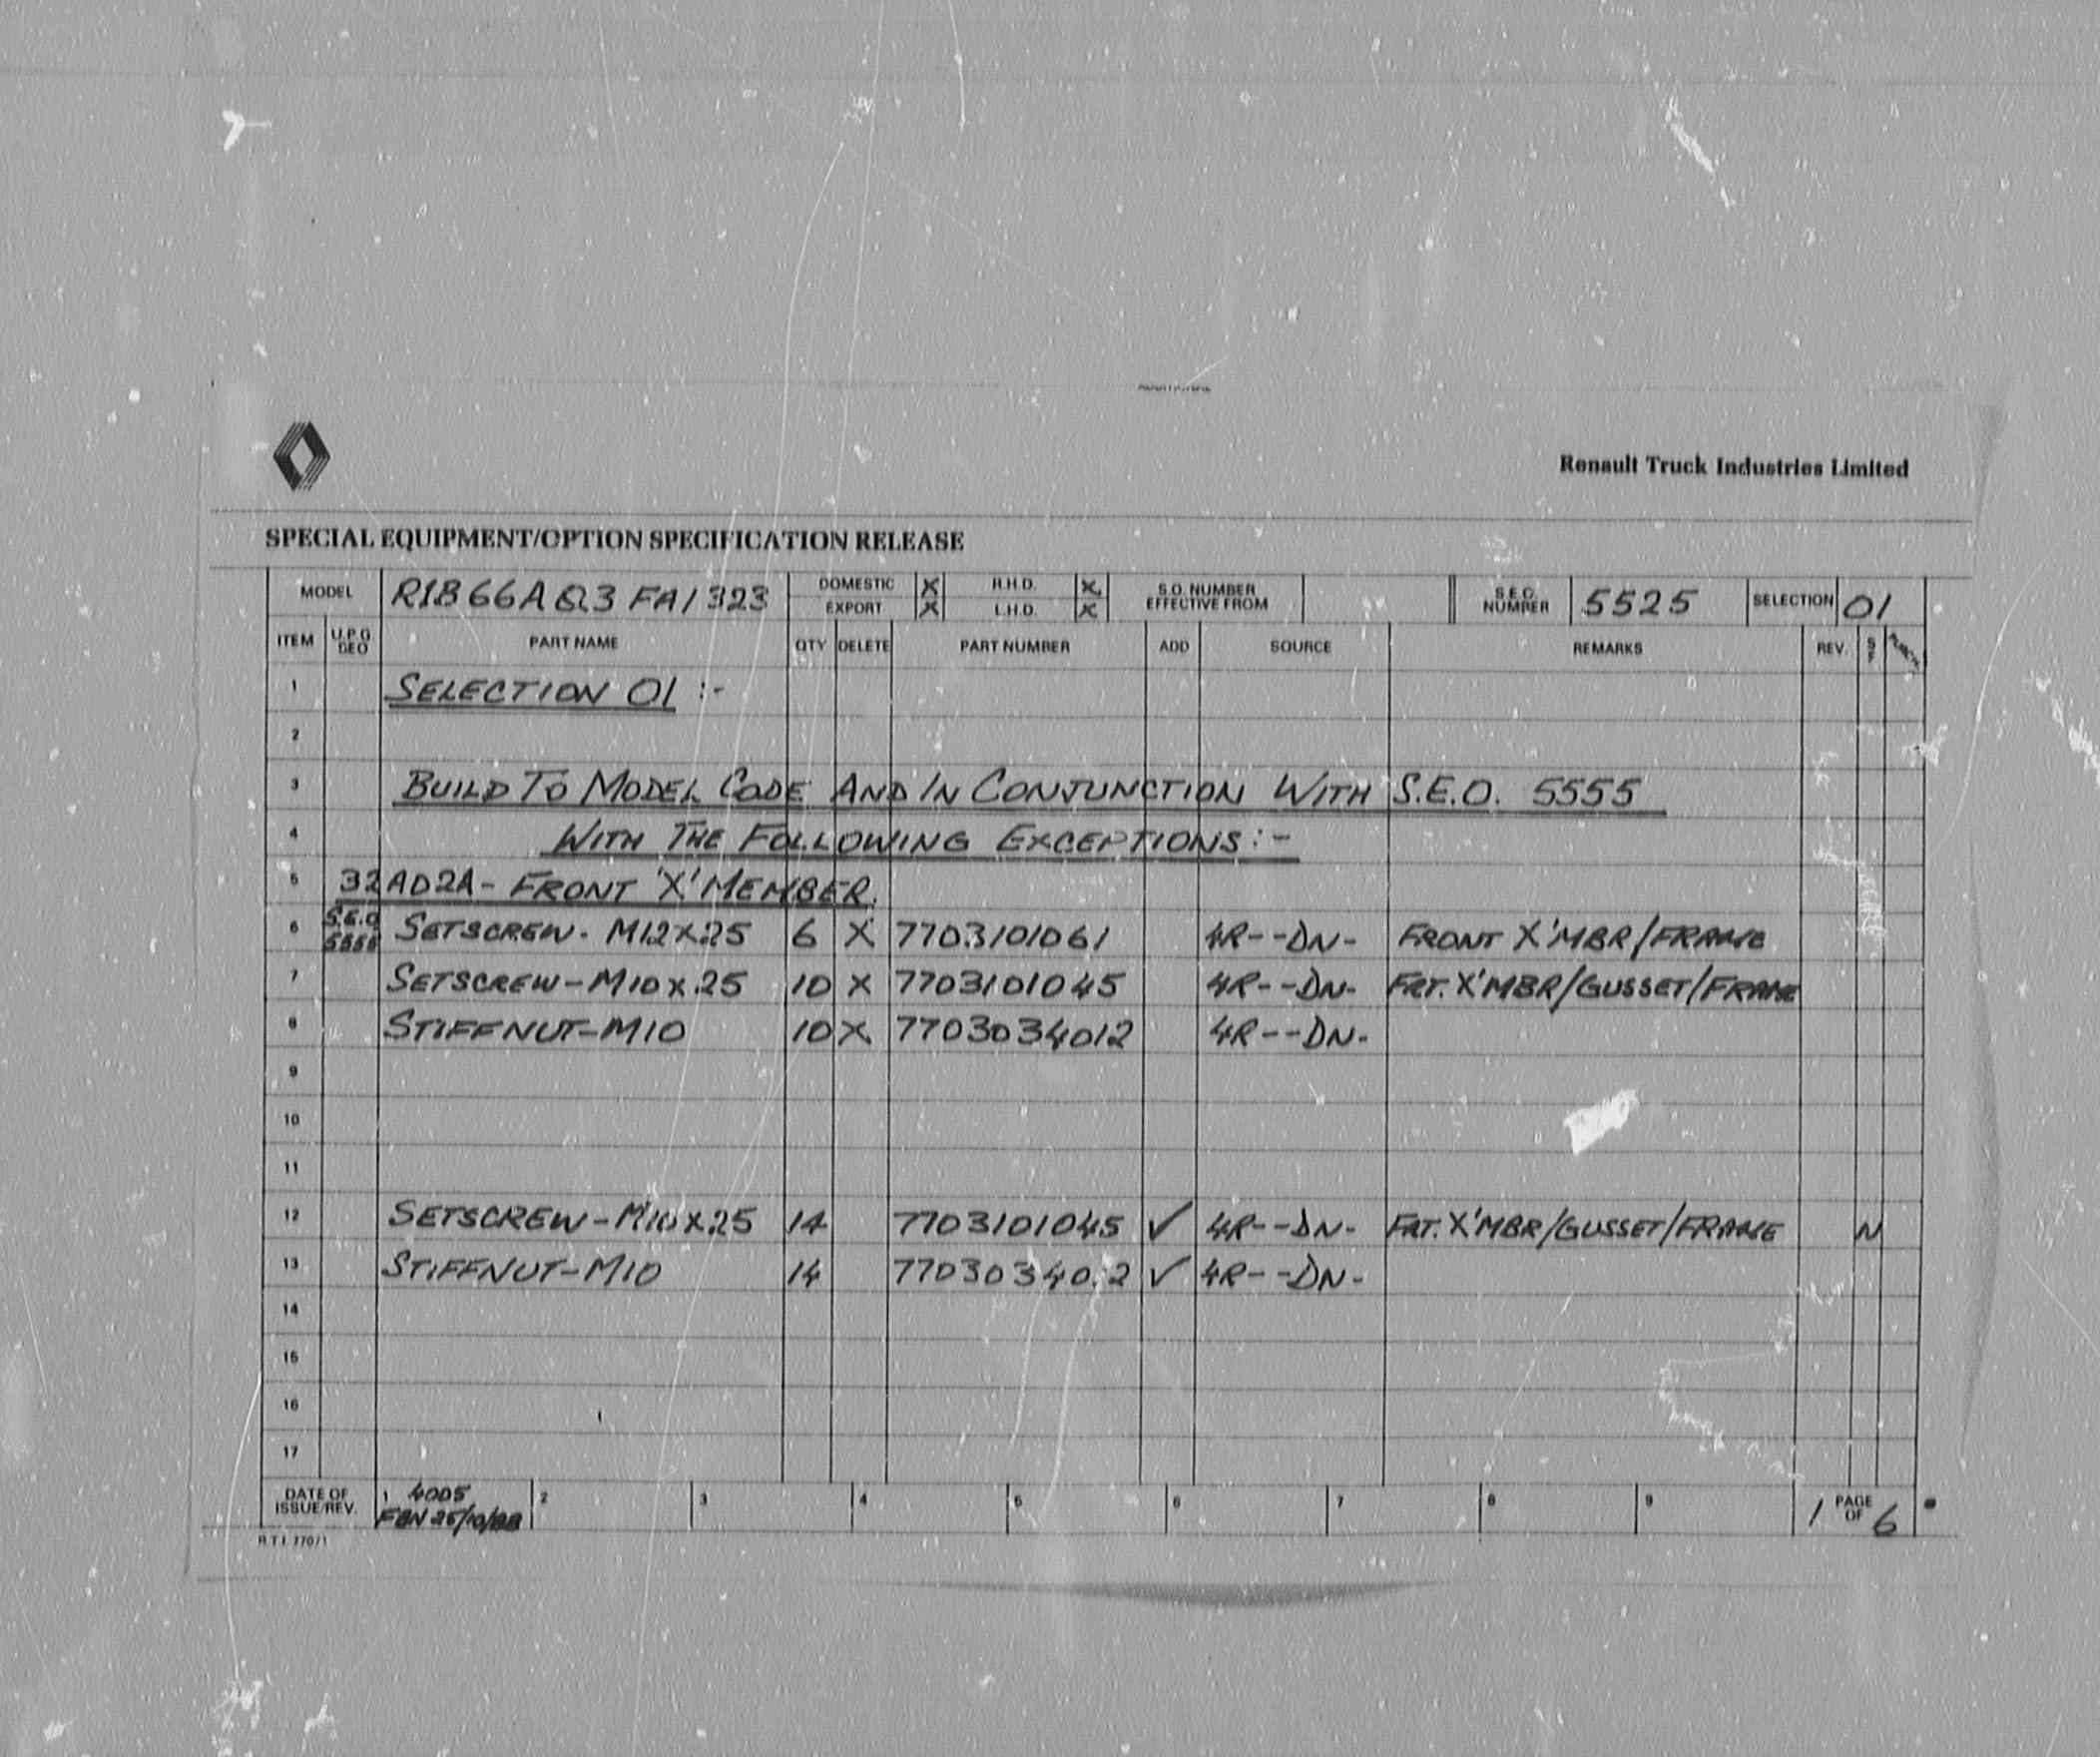 Renault Truck Industries Limited
SPECIAL EQUIPMENT/OPTION SPECIFICATION RELEASE
MODEL R1866AQ3 FA1323 DOMESTIC X R.H.D. X S.O. NUMBER EFFECTIVE FROM S.E.O. NUMBER 5525 SELECTION 01
EXPORT X L.H.D. X
ITEM PART NAME QTY DELETE PART NUMBER ADD SOURCE REMARKS REV.
1 SELECTION 01 :-
2
3 BUILD TO MODEL CODE AND IN CONJUNCTION WITH S.E.O. 5555
4 WITH THE FOLLOWING EXCEPTIONS :-
5 32AD2A - FRONT 'X' MEMBER.
6 S.E.O 5555 SETSCREW - M12 X 25 6 X 7703101061 4R--DN- FRONT X'MBR/FRAME
7 SETSCREW - M10 X 25 10 X 7703101045 4R--DN- FRT. X'MBR/GUSSET/FRAME
8 STIFFNUT - M10 10 X 7703034012 4R--DN-
9
10
11
12 SETSCREW - M10 X 25 14 7703101045 ✓ 4R--DN- FRT. X'MBR/GUSSET/FRAME N
13 STIFFNUT - M10 14 7703034012 ✓ 4R--DN-
14
15
16
17
DATE OF ISSUE/REV. 1 4005 2 3 4 5 6 7 8 9 1 PAGE OF 6
R.T.I. 770/1